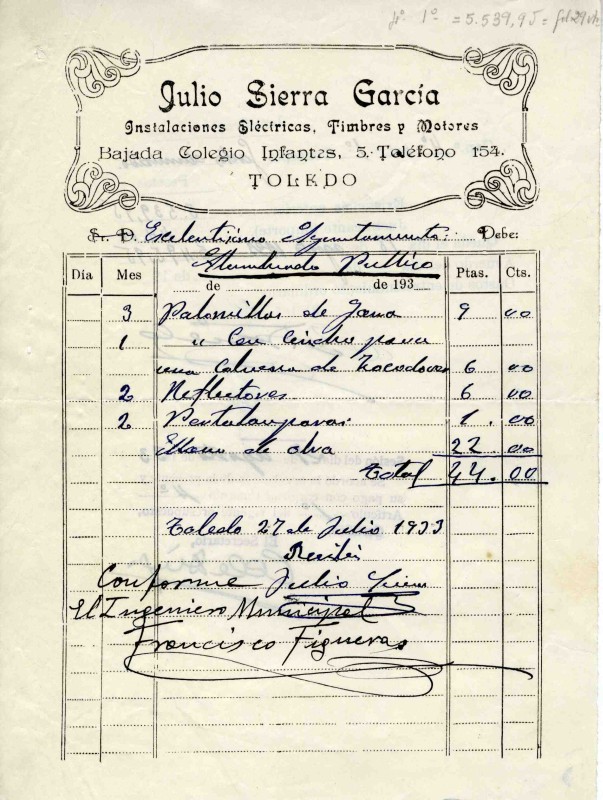 1º = 5.539,95 =
Julio Sierra García
Instalaciones Eléctricas, Timbres y Motores
Bajada Colegio Infantes, 5. Teléfono 154.
TOLEDO
Sr. D. Exelentisimo Ayuntamiento: Debe:
Alumbrado Publico
Día Mes de de 193 Ptas. Cts.
3 Palomillas de 9 00
1 " Con Cincho para
una Columna de Zocodover 6 00
2 Reflectores 6 00
2 Portalamparas 1. 00
Mano de obra 22 00
Total 44.00
Toledo 27 de Julio 1933
Recibi
Conforme Julio Sierra
El Ingeniero Municipal
Francisco Figueras